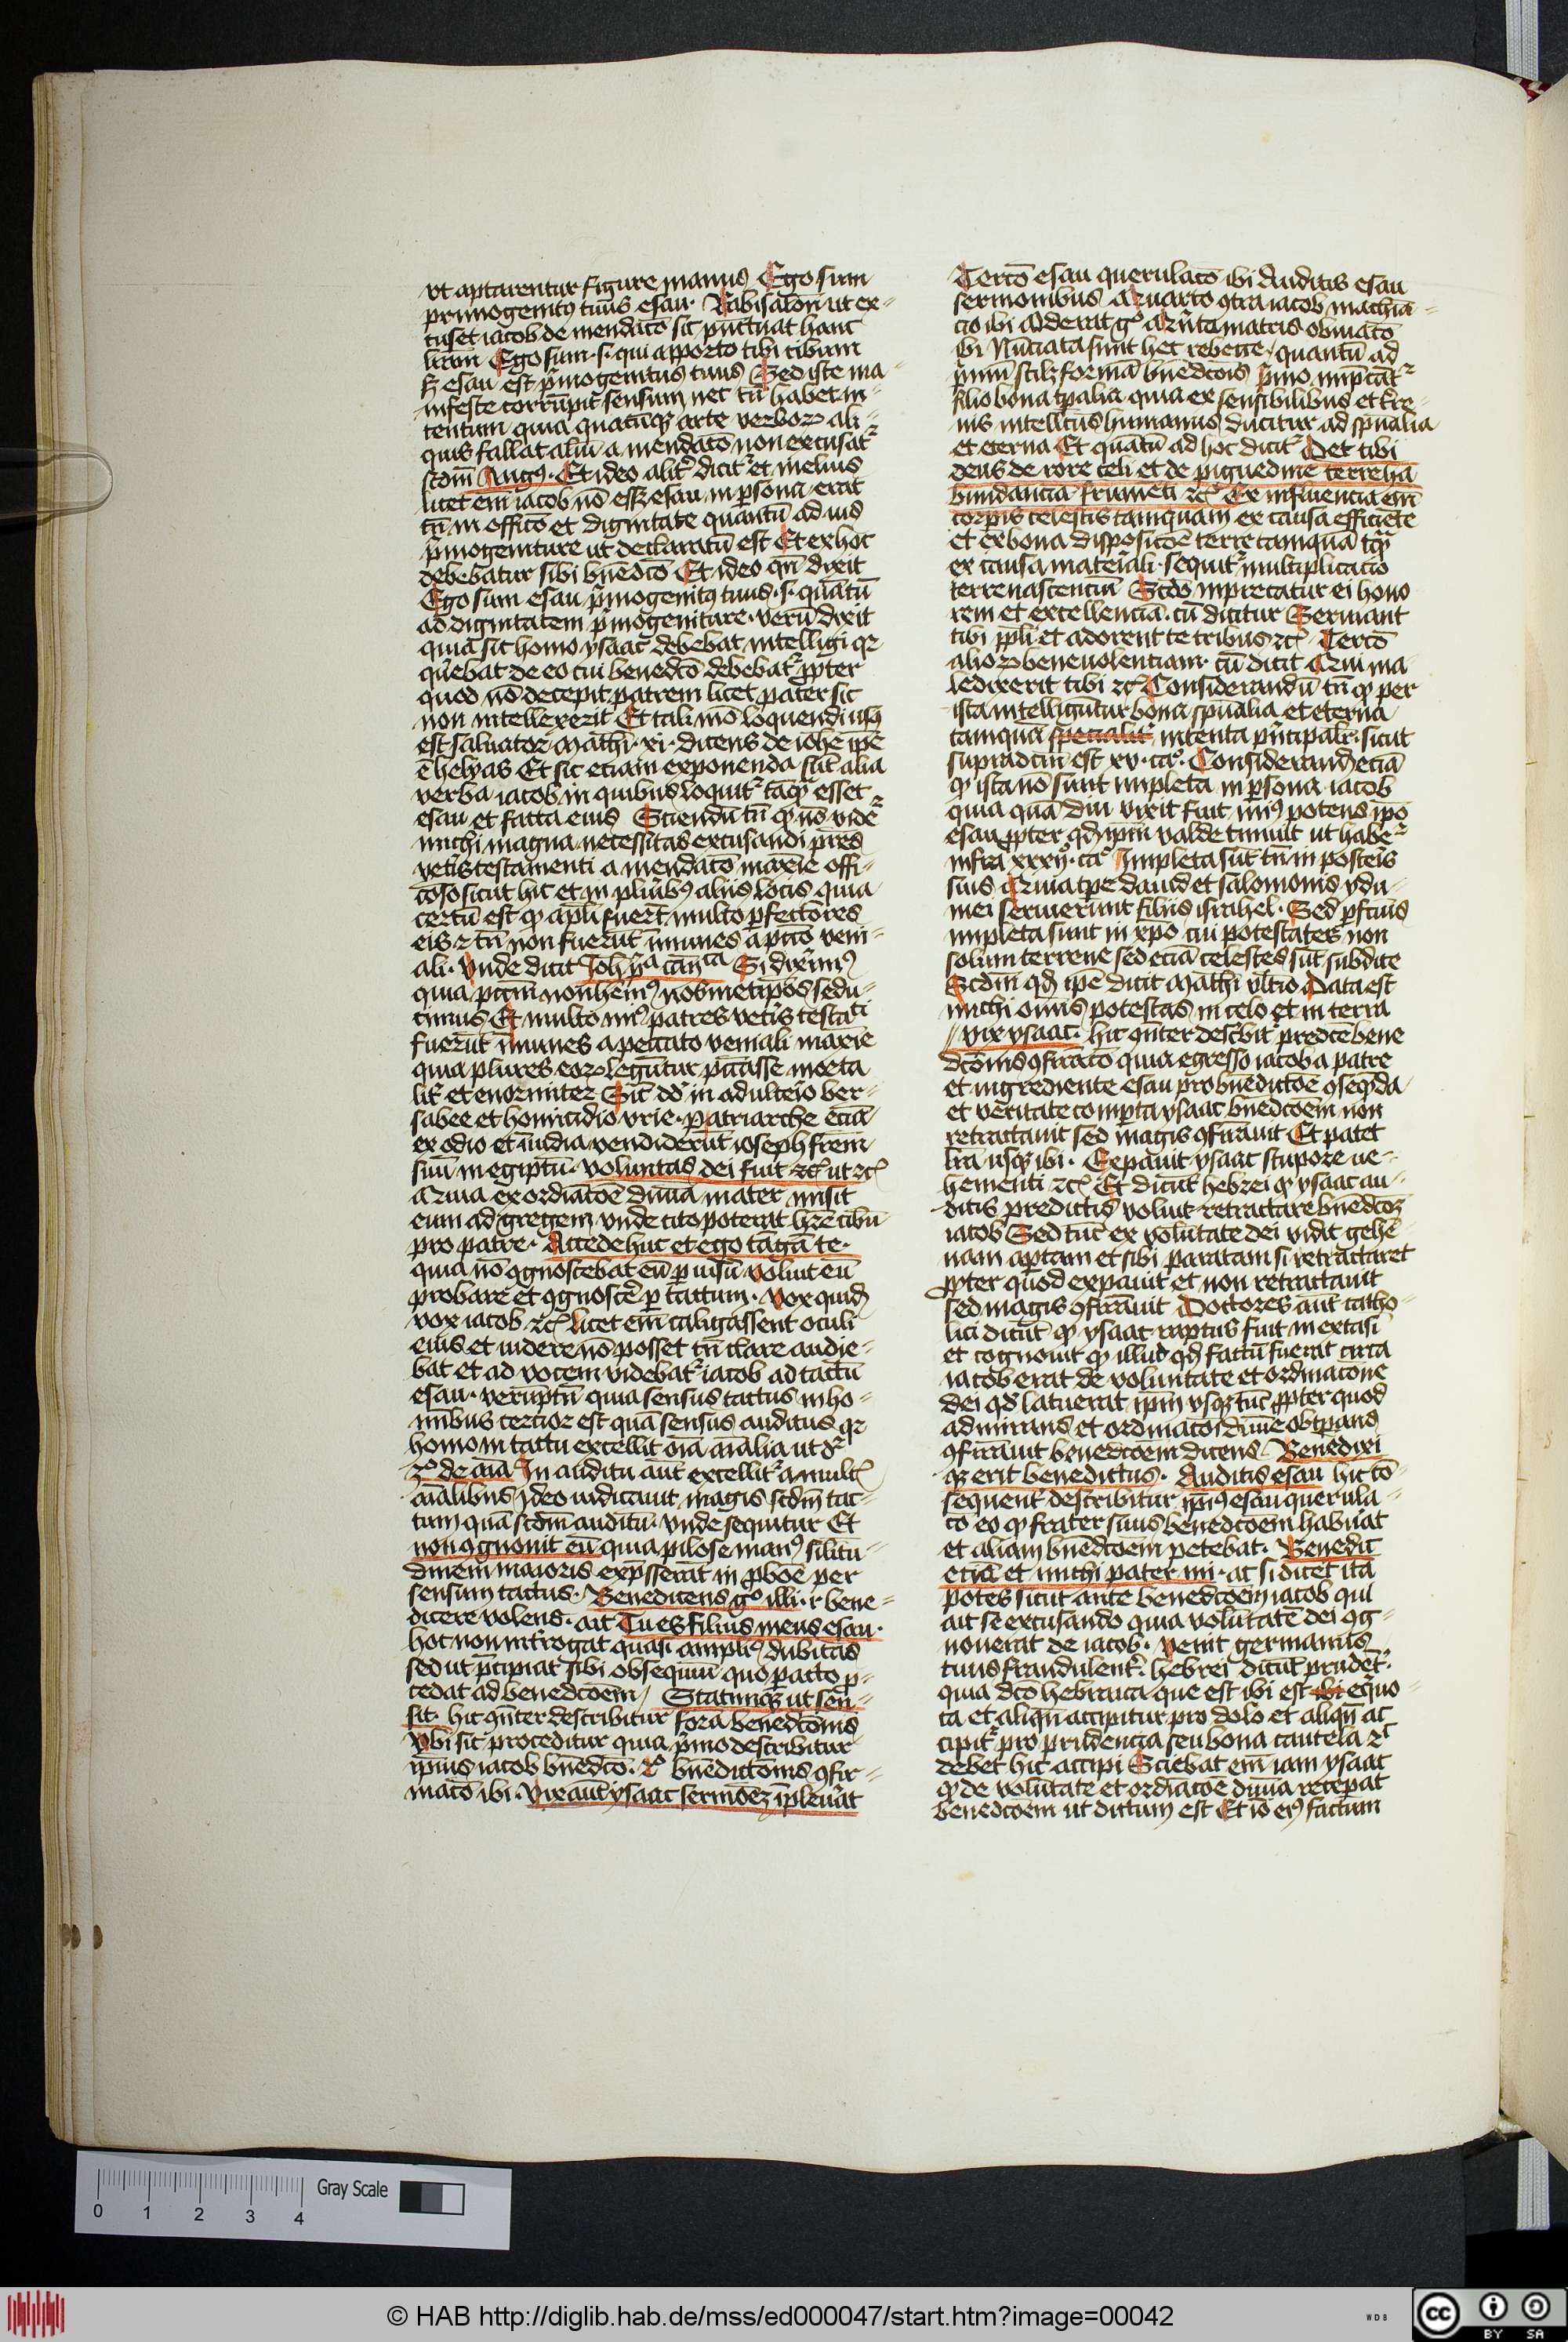 vt aptarentur figure manus Ego sum
primogenitꝯ tuus esau· Rabi salon̄ ut ex⸗
cuset iacob de mendac̄o sic pūctuat hanc
lr̄am Ego sum ·s· qui apporto tibi cibum
sꝫ esau est pͥmogenitus tuus Sed iste ma⸗
nifeste corrūpit sensum nec tn̄ habet in⸗
tentum quia quacūqꝫ arte verboꝝ ali⸗
quis fallat aliū a mendac̄o non excusatᷣ
scd̄m Augꝯ· Et ideo alitᷣ dicitᷣ et melius
licet em̄ iacob nō esset esau in ꝑsona erat
tn̄ in offic̄o et dignitate quantū ad ius
pͥmogeniture ut declaratū est Et ex hoc
debebatur sibi bn̄edic̄o Et ideo qn̄ dixit
Ego sum esau pͥmogenitꝯ tuus ·s· quātū
ad dignitatem pͥmogeniture· verū dixit
quia sic homo ysaac debebat intelligi qꝛ
qͣrebat de eo cui benedc̄o debebatᷣ ꝓpter
quod nō decepit patrem licet pater sic
non intellexerit Et tali mō loquendi usꝯ
est saluator Math̄i· xi· dicens de ioh̄e ip̄e
ē helyas Et sic etiam exponenda sūt alia
verba iacob in quibus loquitᷣ tāqͣ esset
esau et facta eius Sciendū tn̄ qͦ nō videᷣ
michi magna necessitas excusandi pr̄es
vetis testamenti a mendac̄o maxīe offi⸗
c̄oso sicut hic et in pluribꝯ aliis locis quia
certū est qͦ apl̄i fuer̄t multo ꝑfectores
eis ⁊ tn̄ non fuerūt īmunes a pc̄co veni⸗
ali· Vnde dicit Joh̄ pͥᵃ can̄ᶜᵃ Si dixerimꝯ
quia pcc̄m non hēmꝯ nosmetip̄os sedu⸗
cimus Et multo miꝯ patres vetis testaᵗⁱ
fuerūt īmunes a peccato veniali maxīe
quia plures eoꝝ legūtur pcc̄asse morta
lit̄ et enormiter Sic̄ dd̄ in adulteio ber⸗
sabee et homicidio vrie· Patriarche eciā
ex odio et inuidia vendiderūt ioseph fr̄em
suū in egiptū· Voluntas dei fuit ⁊c̄ ut ⁊c̄
Quia ex ordiac̄oē diuīa mater misit
eum ad gregem vnde cito poterat hr̄e cibū
pro patre· Accede huc et ego tāgā te·
quia nō ꝯgnoscebat eū ꝑ uisū voluit eū
probare et ꝯgnosce᷑ ꝑ tactum· Vox quidē
vox iacob ⁊c̄ licet em̄ caligassent oculi
eius et uidere nō posset tn̄ clare audie⸗
bat et ad vocem videbatᷣ iacob ad tactū
esau· verūptn̄ quia sensus tactus in ho⸗
minibus certior est quā sensus auditus qꝛ
homo in tactu excellit oīa aīalia ut dᷣ
2ͦ de aīa In auditu aūt excellitᷣ a mult̄
aīalibus Ideo iudicauit magis scd̄m tac⸗
tum quā scd̄m auditū· vnde sequitur Et
non ꝯgnouit eū quia pilose manꝯ silitu⸗
dinem maioris exp̄sserāt in ꝓboē per
sensum tactus· Benedicens gͦ illi· r bene⸗
dicere volens· ait Tu es filius meus esau·
hoc non int̄rogat quasi ampliꝯ dubitās
sed ut p̄cipiat sibi obsequiū quo ꝑacto ꝓ⸗
cedat ad benedc̄oem/ Statimqꝫ ut sen⸗
sit· hic ꝯn̄ter describitur form̄a benedc̄onis
Vbi sic proceditur quia pͥmo describitur
ip̄ius iacob bn̄edc̄o· 2ͦ bn̄edictōis ꝯfir⸗
mac̄o ibi· Vix aūt ysaac sermoēꝫ īpleuāt
Terc̄o esau querulac̄o ibi Auditis esau
sermonibus Quarto ꝯtra iacob machīa⸗
cio ibi Oderat gͦ Quīta matris obuiac̄o
ibi Nūciata sunt hec rebecce/ quantū ad
pͥmū scilꝫ formā bn̄edc̄ois pͥmo imp̄catᷣ
filio bona tp̄alia quia ex sensibilibus et tre⸗
nis intellectus humanus ducitur ad spūalia
et eterna Et quātū ad hoc dicitᷣ Det tibi
deus de rore celi et de piguedine terre hā
bundanciā frumēti ⁊c̄ Ex influencia em̄
corpis celestis tamquam ex causa efficiēte
et ex bona disposic̄oē terre tamquā tqͣ
ex causa materiali· sequitᷣ multiplicacio
terre nascenciū Scdō inprecatur ei hono
rem et excellenciā· cū dicitur Seruiant
tibi ppl̄i et adorent te tribus ⁊c̄· Terc̄o
alioꝝ beneuolentiam· cū dicit Qui ma
ledixerit tibi ⁊c̄ Considerandū tn̄ qͦ per
ista intelligūtur bona spūalia et eterna
tamquā intenta pͥncipalr̄· sicut
supradcm̄ est xv· caͦ· Considerandū eciā
qͦ ista nō sunt impleta in ꝑsona iacob
quia quā diu vixit fuit miꝯ potens ip̄o
esau ꝓpter qd̄ ip̄m valde timuit ut habeᷣ
infra xxxijͦ· caͦ Impleta sūt tn̄ in posteis
suis Quia tp̄e dauid et salomonis ydu⸗
mei seruierunt filiis israhel· Sed ꝑfcīus
impleta sunt in xpo cui potestates non
solum terrene sed eciā celestes sūt subdite
Scdm̄ qd̄ ip̄e dicit Math̄i vltīo Data est
michi omīs potestas in celo et in terra
Vix ysaac· hic ꝯn̄ter descbitᷣ predcē bene
dc̄onis ꝯfirac̄o quia egresso iacob a patre
et ingrediente esau pro bn̄edictōe ꝯseq̄nda
et veritate compta ysaac bn̄edc̄oem non
retractauit sed magis ꝯfirmāuit Et patet
lr̄a usqꝫ ibi· Expauit ysaac stupore ue⸗
hementi ⁊c̄ Et dicūt hebrei qͦ ysaac au⸗
ditis predictis voluit retractare bn̄edc̄oꝫ
iacob Sed tūc ex volūtate dei vidit gehē
nam aptam et sibi paratam si retractaret
ꝓpter quod expauit et non retractauit
sed magis ꝯfirmāuit Doctores aūt catho⸗
lici dicūt qͦ ysaac raptus fuit in extasi
et cognouit qͦ illud qd̄ factū fuerat circa
iacob erat de voluntate et ordinac̄one
dei qd̄ latuerat ip̄m vsqꝫ tūc ꝓpter quod
admirans et ordinac̄oi diuīe obtp̄ans
ꝯfirmāuit benedc̄oem dicens· Benedixi
qꝫ erit benedictus· Auditis esau hic cō⸗
sequent̄ describitur ip̄iꝯ esau querula⸗
c̄o eo qͦ frater suus benedc̄oem habuit
et aliam bn̄edc̄oem petebat· Benedic
eciā et michi pater mi· ac si dicet ita
potes sicut ante benedc̄oem iacob qui
ait se excusando quia volūtatē dei ꝯg⸗
nouerat de iacob· Venit germanus
tuus fraudulent̄· hebrei dicūt prudēt̄·
quia dcō hebraica que est ibi est eq̄uo⸗
ca et aliqn̄ accipitur pro dolo et aliqn̄ ac
cipitᷣ pro prudencia seu bona cautela ⁊c̄
debet hic accipi Sciebat em̄ iam ysaac
qͦ de volūtate et ordīacoē diuīa recepat
benedc̄oem ut dictum est Et iō eiꝯ factum
Gray Scale
0 1 2 3 4
© HAB http://diglib.hab.de/mss/ed000047/start.htm?image=00042
WDB
cc BY SA